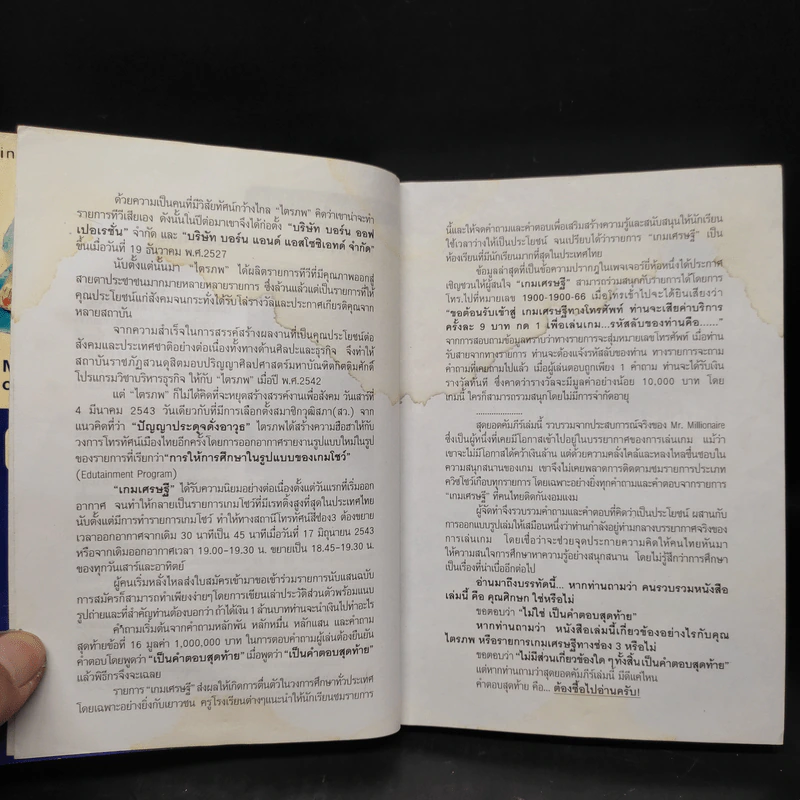 in
ด้วยความเป็นคนที่มีวิสัยทัศน์กว้างไกล "ไตรภพ" คิดว่าเขาน่าจะทำ
รายการทีวีเสียเอง ดังนั้นในปีต่อมาเขาจึงได้ก่อตั้ง "บริษัท บอร์น ออฟ
เปอเรชั่น" จำกัด และ "บริษัท บอร์น แอนด์ แอสโซซิเอทด์ จำกัด"
ขึ้นเมื่อวันที่ 19 ธันวาคม พ.ศ.2527
นับตั้งแต่นั้นมา "ไตรภพ" ได้ผลิตรายการทีวีที่มีคุณภาพออกสู่
สายตาประชาชนมากมายหลายหลายรายการ ซึ่งล้วนแล้วแต่เป็นรายการที่ให้
คุณประโยชน์แก่สังคมจนกระทั่งได้รับโล่รางวัลและประกาศเกียรติคุณจาก
หลายสถาบัน
จากความสำเร็จในการสรรค์สร้างผลงานที่เป็นคุณประโยชน์ต่อ
สังคมและประเทศชาติอย่างต่อเนื่องทั้งทางด้านศิลปะและธุรกิจ จึงทำให้
สถาบันราชภัฏสวนดุสิตมอบปริญญาศิลปศาสตร์มหาบัณฑิตกิตติมศักดิ์
โปรแกรมวิชาบริหารธุรกิจ ให้กับ "ไตรภพ" เมื่อปี พ.ศ.2542
แต่ "ไตรภพ" ก็ไม่ได้คิดที่จะหยุดสร้างสรรค์งานเพื่อสังคม วันเสาร์ที่
4 มีนาคม 2543 วันเดียวกับที่มีการเลือกตั้งสมาชิกวุฒิสภา(สว.) จาก
แนวคิดที่ว่า "ปัญญาประดุจดั่งอาวุธ" ไตรภพได้สร้างความฮือฮาให้กับ
วงการโทรทัศน์เมืองไทยอีกครั้งโดยการออกอากาศรายงานรูปแบบใหม่ในรูป
ของรายการที่เรียกว่า"การให้การศึกษาในรูปแบบของเกมโชว์"
(Edutainment Program)
"เกมเศรษฐี" ได้รับความนิยมอย่างต่อเนื่องตั้งแต่วันแรกที่เริ่มออก
อากาศ จนทำให้กลายเป็นรายการเกมโชว์ที่มีเรทติ้งสูงที่สุดในประเทศไทย
นับตั้งแต่มีการทำรายการเกมโชว์ ทำให้ทางสถานีโทรทัศน์สีช่อง3 ต้องขยาย
เวลาออกอากาศจากเดิม 30 นาทีเป็น 45 นาทีเมื่อวันที่ 17 มิถุนายน 2543
หรือจากเดิมออกอากาศเวลา 19.00-19.30 น. ขยายเป็น 18.45-19.30 น.
ของทุกวันเสาร์และอาทิตย์
ผู้คนเริ่มหลั่งไหลส่งใบสมัครเข้ามาขอเข้าร่วมรายการนับแสนฉบับ
การสมัครก็สามารถทำเพียงง่ายๆโดยการเขียนเล่าประวัติส่วนตัวพร้อมแนบ
รูปถ่ายและที่สำคัญท่านต้องบอกว่า ถ้าได้เงิน 1 ล้านบาทท่านจะนำเงินไปทำอะไร
คำถามเริ่มต้นจากคำถามหลักพัน หลักหมื่น หลักแสน และคำถาม
สุดท้ายข้อที่ 16 มูลค่า 1,000,000 บาท ในการตอบคำถามผู้เล่นต้องยืนยัน
คำตอบโดยพูดว่า "เป็นคำตอบสุดท้าย" เมื่อพูดว่า "เป็นคำตอบสุดท้าย"
แล้วพิธีกรจึงจะเฉลย
รายการ "เกมเศรษฐี" ส่งผลให้เกิดการตื่นตัวในวงการศึกษาทั่วประเทศ
โดยเฉพาะอย่างยิ่งกับเยาวชน ครูโรงเรียนต่างๆแนะนำให้นักเรียนชมรายการ
นี้และให้จดคำถามและคำตอบเพื่อเสริมสร้างความรู้และสนับสนุนให้นักเรียน
ใช้เวลาว่างให้เป็นประโยชน์ จนเปรียบได้ว่ารายการ "เกมเศรษฐี" เป็น
ห้องเรียนที่มีนักเรียนมากที่สุดในประเทศไทย
ข้อมูลล่าสุดที่เป็นข้อความปรากฏในเพจเจอร์ยี่ห้อหนึ่งได้ประกาศ
เชิญชวนให้ผู้สนใจ "เกมเศรษฐี" สามารถร่วมสนุกกับรายการได้โดยการ
โทร.ไปที่หมายเลข 1900-1900-66 เมื่อโทรเข้าไปจะได้ยินเสียงว่า
"ขอต้อนรับเข้าสู่ เกมเศรษฐีทางโทรศัพท์ ท่านจะเสียค่าบริการ
ครั้งละ 9 บาท กด 1 เพื่อเล่นเกม...รหัสลับของท่านคือ......"
จากการสอบถามข้อมูลทราบว่าทางรายการจะสุ่มหมายเลขโทรศัพท์ เมื่อท่าน
รับสายจากทางรายการ ท่านจะต้องแจ้งรหัสลับของท่าน ทางรายการจะถาม
คำถามที่เคยถามไปแล้ว เมื่อผู้เล่นตอบถูกเพียง 1 คำถาม ท่านจะได้รับเงิน
รางวัลทันที ซึ่งคาดว่ารางวัลจะมีมูลค่าอย่างน้อย 10,000 บาท โดย
เกมนี้ ใครก็สามารถร่วมสนุกโดยไม่มีการจำกัดอายุ
.....................
สุดยอดคัมภีร์เล่มนี้ รวบรวมจากประสบการณ์จริงของ Mr. Millionaire
ซึ่งเป็นผู้ที่เคยมีโอกาสเข้าไปอยู่ในบรรยากาศของการเล่นเกม แม้ว่า
เขาจะไม่มีโอกาสได้คว้าเงินล้าน แต่ด้วยความคลั่งไคล้และหลงใหลชื่นชอบใน
ความสนุกสนานของเกม เขาจึงไม่เคยพลาดการติดตามชมรายการประเภท
ควิซโชว์เกือบทุกรายการ โดยเฉพาะอย่างยิ่งทุกคำถามและคำตอบจากรายการ
"เกมเศรษฐี" ที่คนไทยติดกันงอมแงม
ผู้จัดทำจึงรวบรวมคำถามและคำตอบที่คิดว่าเป็นประโยชน์ ผสานกับ
การออกแบบรูปเล่มให้เสมือนหนึ่งว่าท่านกำลังอยู่ท่ามกลางบรรยากาศจริงของ
การเล่นเกม โดยเชื่อว่าจะช่วยจุดประกายความคิดให้คนไทยหันมา
ให้ความสนใจการศึกษาหาความรู้อย่างสนุกสนาน โดยไม่รู้สึกว่าการศึกษา
เป็นเรื่องที่น่าเบื่ออีกต่อไป
อ่านมาถึงบรรทัดนี้... หากท่านถามว่า คนรวบรวมหนังสือ
เล่มนี้ คือ คุณศิษฎก ใช่หรือไม่
ขอตอบว่า "ไม่ใช่ เป็นคำตอบสุดท้าย"
หากท่านถามว่า หนังสือเล่มนี้เกี่ยวข้องอย่างไรกับคุณ
ไตรภพ หรือรายการเกมเศรษฐีทางช่อง 3 หรือไม่
ขอตอบว่า "ไม่มีส่วนเกี่ยวข้องใด ๆทั้งสิ้นเป็นคำตอบสุดท้าย"
แต่หากท่านถามว่าสุดยอดคัมภีร์เล่มนี้ มีดีแค่ไหน
คำตอบสุดท้าย คือ... ต้องซื้อไปอ่านครับ!